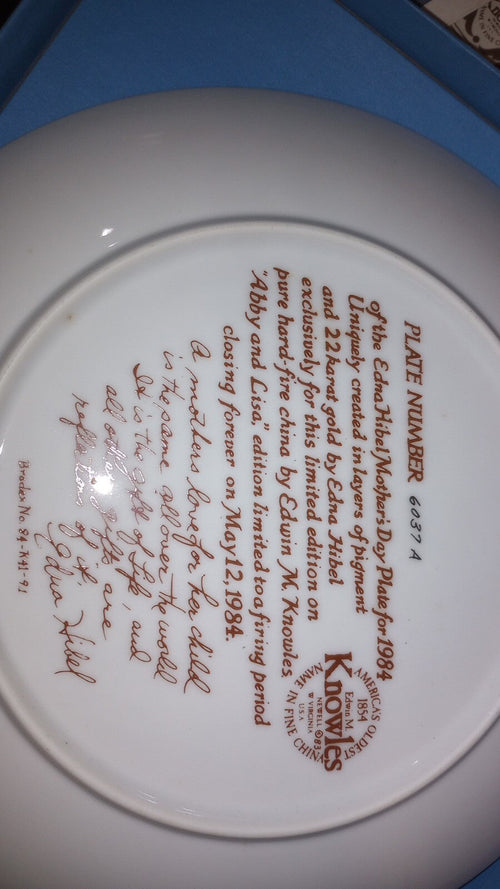 PLATE NUMBER 6037 A
of the Edna Hibel Mother's Day Plate for 1984
Uniquely created in layers of pigment
and 22 karat gold by Edna Hibel
exclusively for this limited edition on
pure hard-fire china by Edwin M. Knowles.
"Abby and Lisa," edition limited to a firing period
closing forever on May 12, 1984.
A mothers love for her child
is the same all over the world
It is the gift of Life, and
all other gifts are
reflections of it
Edna Hibel
Bradex No. 84-K41-9.1
AMERICA'S OLDEST
1854
Edwin M.
Knowles
NEWELL ©83
W VIRGINIA
U.S.A
NAME IN FINE CHINA